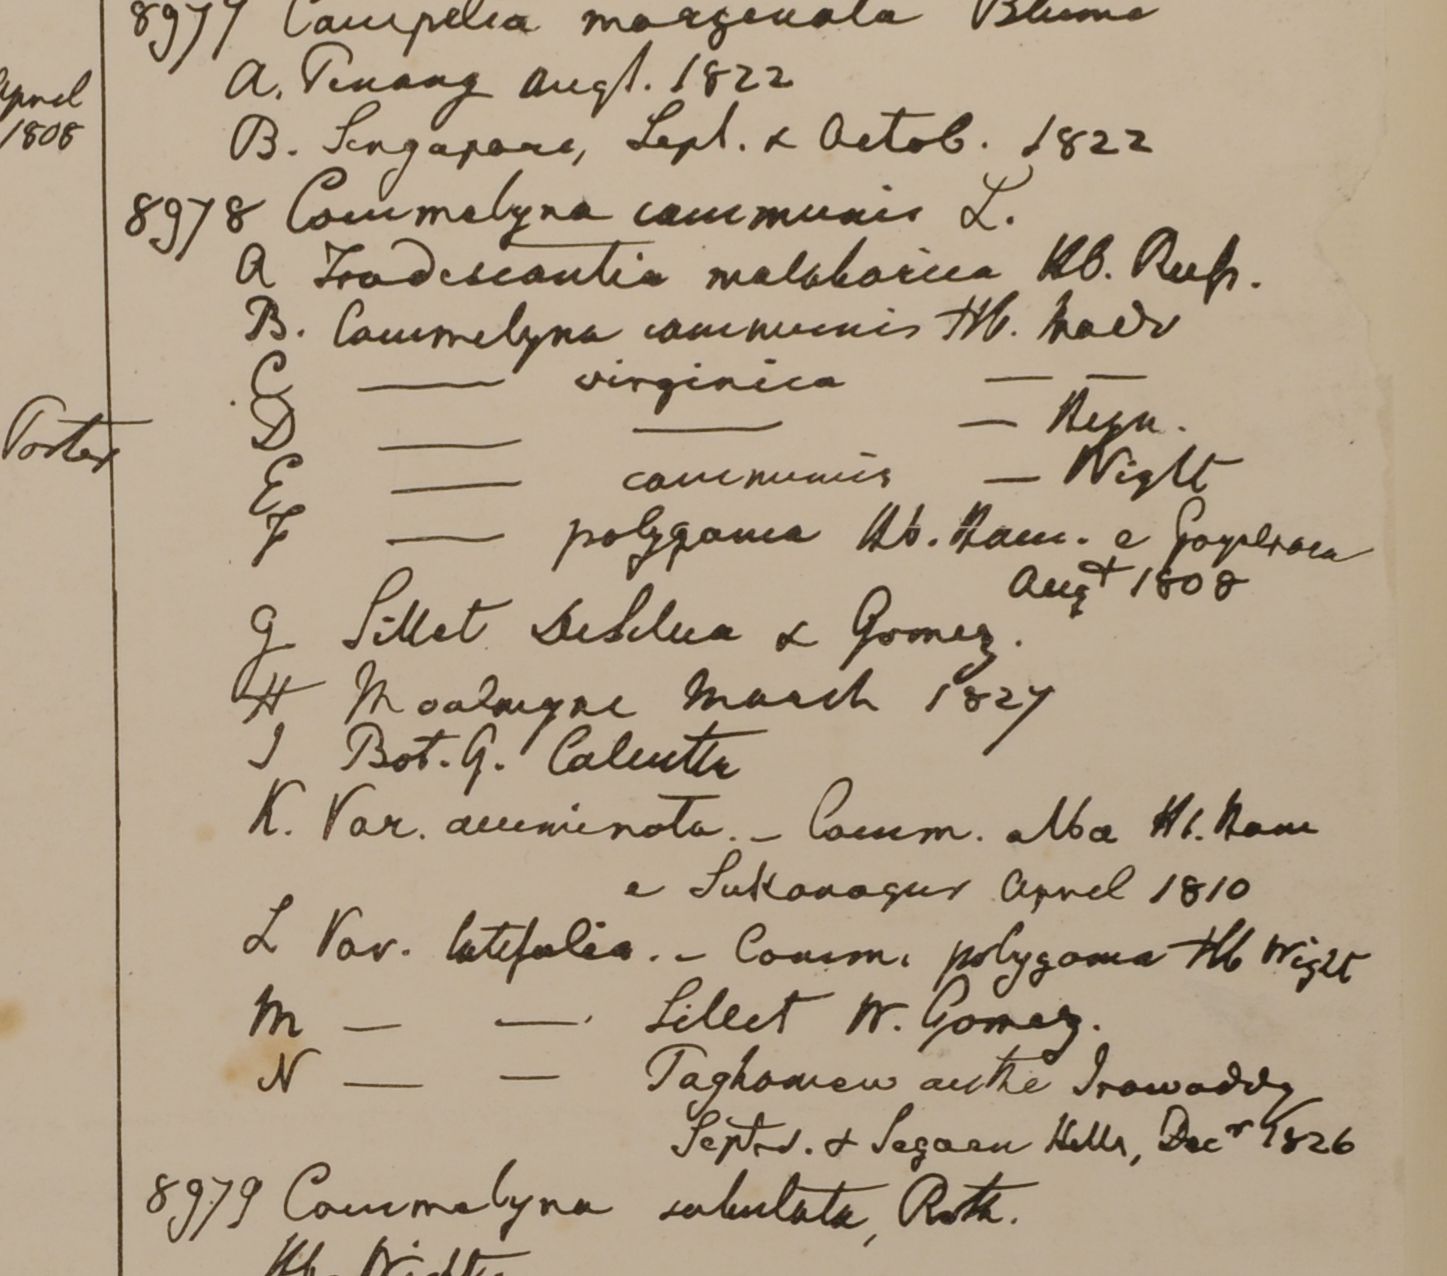 8977 Campelia marginata Blume
A. Penang Augt. 1822
April
1808
B. Singapore, Sept. & Octob. 1822
8978 Commelyna communis L.
A Tradescantia malabarica Hb. Russ.
B. Commelyna communis Hb. Madr
C — virginica — —
D — — — Heyn.
E — communis — Wight
Porter
F — polygama Hb. Ham. e
Augt 1808
G Sillet DeSilva & Gomez.
H Moalmyne March 1827
I Bot. G. Calcutta
K. Var. acuminata. – Comm. alba Hb. Ham
e April 1810
L Var. latifolia. – Comm. polygama Hb Wight
M — — Sillet W. Gomez.
N — — Taghomew Irawaddy
Septr. & Segaen Hills, Decr 1826
8979 Commelyna subulata, Roth.
Hb. Wight